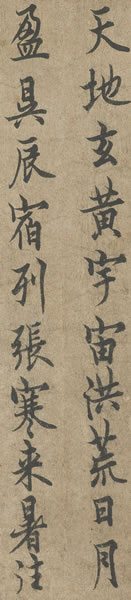 天地玄黄宇宙洪荒日月
盈昃辰宿列張寒来暑往